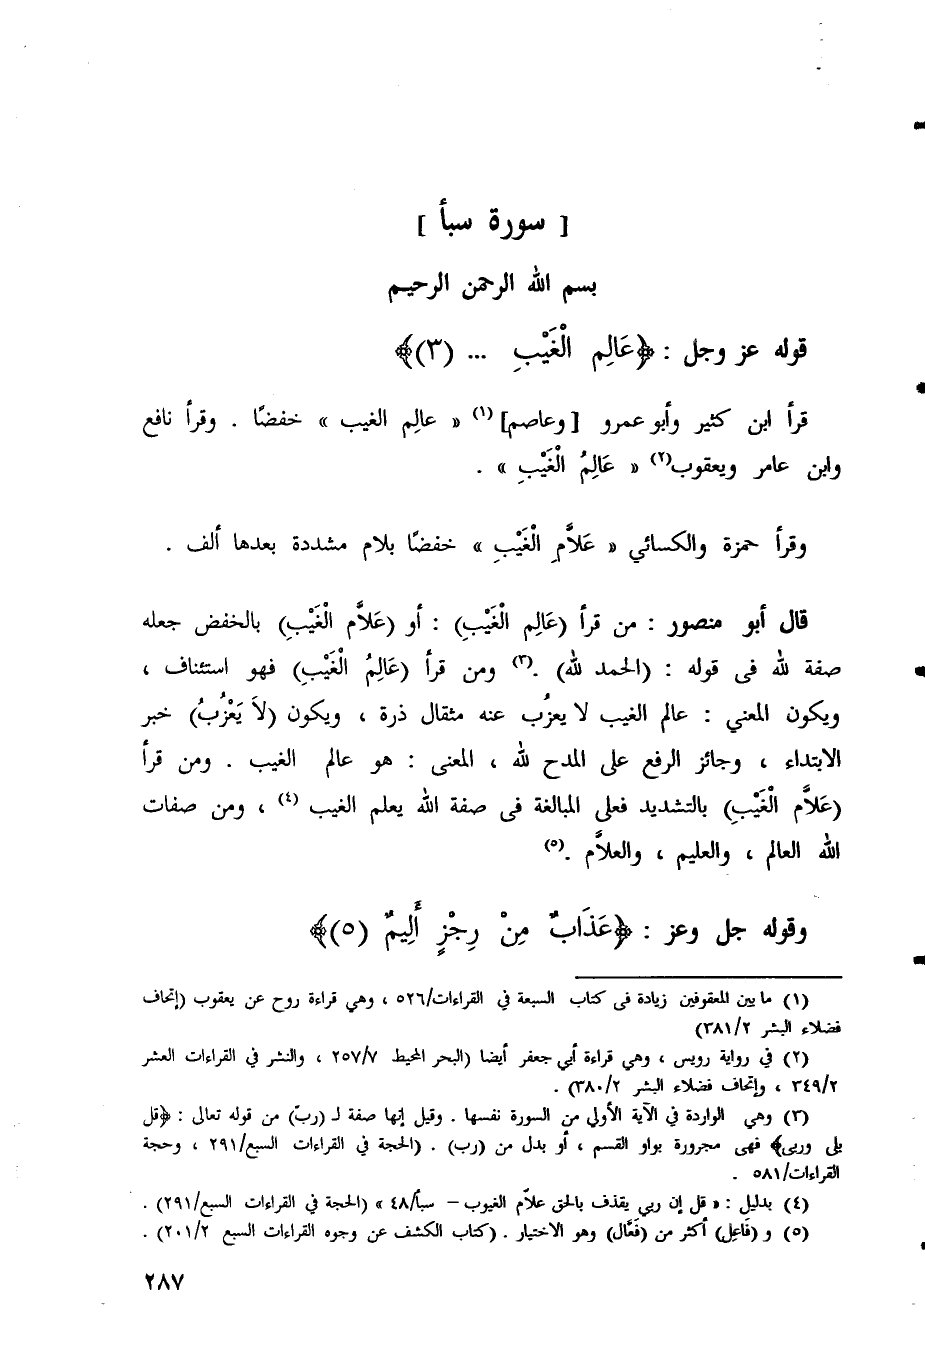 [ سورة سبأ ]
بسم الله الرحمن الرحيم
قوله عز وجل : ﴿عَالِمِ الْغَيْبِ ... (٣)﴾
قرأ ابن كثير وأبو عمرو [وعاصم] (١) « عالِم الغيب » خفضًا . وقرأ نافع
وابن عامر ويعقوب(٢) « عَالِمُ الْغَيْبِ » .
وقرأ حمزة والكسائي « عَلاَّمِ الْغَيْبِ » خفضًا بلام مشددة بعدها ألف .
قال أبو منصور : من قرأ (عَالِمِ الْغَيْبِ) : أو (عَلاَّمِ الْغَيْبِ) بالخفض جعله
صفة لله فى قوله : (الحمد لله) .(٣) ومن قرأ (عَالِمُ الْغَيْبِ) فهو استئناف ،
ويكون المعني : عالم الغيب لا يعزُب عنه مثقال ذرة ، ويكون (لاَ يَعْزُبُ) خبر
الابتداء ، وجائز الرفع على المدح لله ، المعنى : هو عالم الغيب . ومن قرأ
(عَلاَّمِ الْغَيْبِ) بالتشديد فعلى المبالغة فى صفة الله يعلم الغيب (٤) ، ومن صفات
الله العالم ، والعليم ، والعلاَّم .(٥)
وقوله جل وعز : ﴿عَذَابٌ مِنْ رِجْزٍ أَلِيمٌ (٥)﴾
(١) ما بين المعقوفين زيادة فى كتاب السبعة في القراءات/٥٢٦ ، وهي قراءة روح عن يعقوب (إتحاف
فضلاء البشر ٣٨١/٢)
(٢) في رواية رويس ، وهي قراءة أبي جعفر أيضا (البحر المحيط ٢٥٧/٧ ، والنشر في القراءات العشر
٣٤٩/٢ ، وإتحاف فضلاء البشر ٣٨٠/٢) .
(٣) وهي الواردة في الآية الأولي من السورة نفسها . وقيل إنها صفة لـ (ربّ) من قوله تعالى : ﴿قل
بلى وربى﴾ فهى مجرورة بواو القسم ، أو بدل من (رب) . (الحجة في القراءات السبع/٢٩١ ، وحجة
القراءات/٥٨١ .
(٤) بدليل : « قل إن ربي يقذف بالحق علاّم الغيوب – سبأ/٤٨ » (الحجة في القراءات السبع/٢٩١) .
(٥) و (فَاعِل) أكثر من (فَعَّال) وهو الاختيار . (كتاب الكشف عن وجوه القراءات السبع ٢٠١/٢) .
٢٨٧